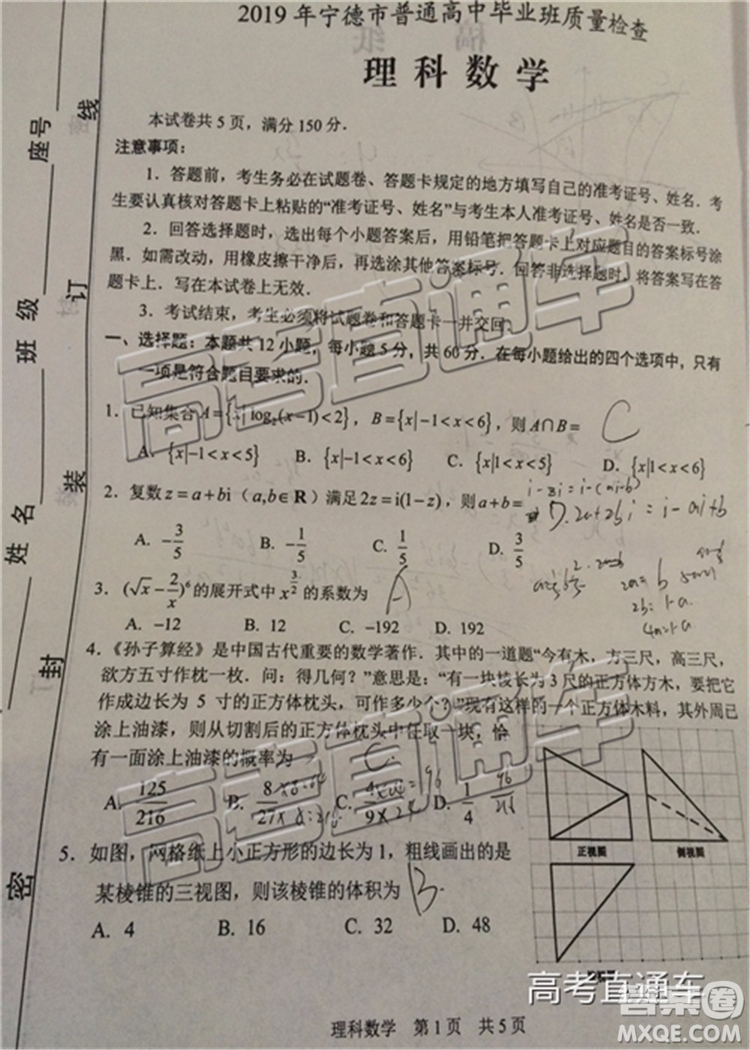 2019 年宁德市普通高中毕业班质量检查
理 科 数 学
本试卷共 5 页，满分 150 分．
注意事项：
1．答题前，考生务必在试题卷、答题卡规定的地方填写自己的准考证号、姓名．考
生要认真核对答题卡上粘贴的“准考证号、姓名”与考生本人准考证号、姓名是否一致．
2．回答选择题时，选出每个小题答案后，用铅笔把答题卡上对应题目的答案标号涂
黑．如需改动，用橡皮擦干净后，再选涂其他答案标号．回答非选择题时，将答案写在答
题卡上．写在本试卷上无效．
3．考试结束，考生必须将试题卷和答题卡一并交回．
一、选择题：本题共 12 小题，每小题 5 分，共 60 分．在每小题给出的四个选项中，只有
一项是符合题目要求的．
1．已知集合 A={x| log₂(x−1)<2}，B={x|−1<x<6}，则 A∩B= C
A．{x|−1<x<5} B．{x|−1<x<6} C．{x|1<x<5} D．{x|1<x<6}
2．复数 z=a+bi（a,b∈R）满足 2z=i(1−z)，则 a+b=
2a+2bi=i-ai+b
A．−3/5 B．−1/5 C．1/5 D．3/5
2a=b
2b=1-a
4a=1-a
3．(√x−2/x)⁶ 的展开式中 x^(3/2) 的系数为 A
A．−12 B．12 C．−192 D．192
4．《孙子算经》是中国古代重要的数学著作．其中的一道题“今有木，方三尺，高三尺，
欲方五寸作枕一枚．问：得几何？”意思是：“有一块棱长为 3 尺的正方体方木，要把它
作成边长为 5 寸的正方体枕头，可作多少个？”现有这样的一个正方体木料，其外周已
涂上油漆，则从切割后的正方体枕头中任取一块，恰
有一面涂上油漆的概率为 C
A．125/216 B．8/27 C．4/9 D．1/4
正视图 侧视图
5．如图，网格纸上小正方形的边长为 1，粗线画出的是
某棱锥的三视图，则该棱锥的体积为 B
A．4 B．16 C．32 D．48
理科数学 第 1 页 共 5 页
座号
班 级
姓 名
线
订
装
封
密
高考直通车
高考直通车
高考直通车
答案圈
MXQE.COM